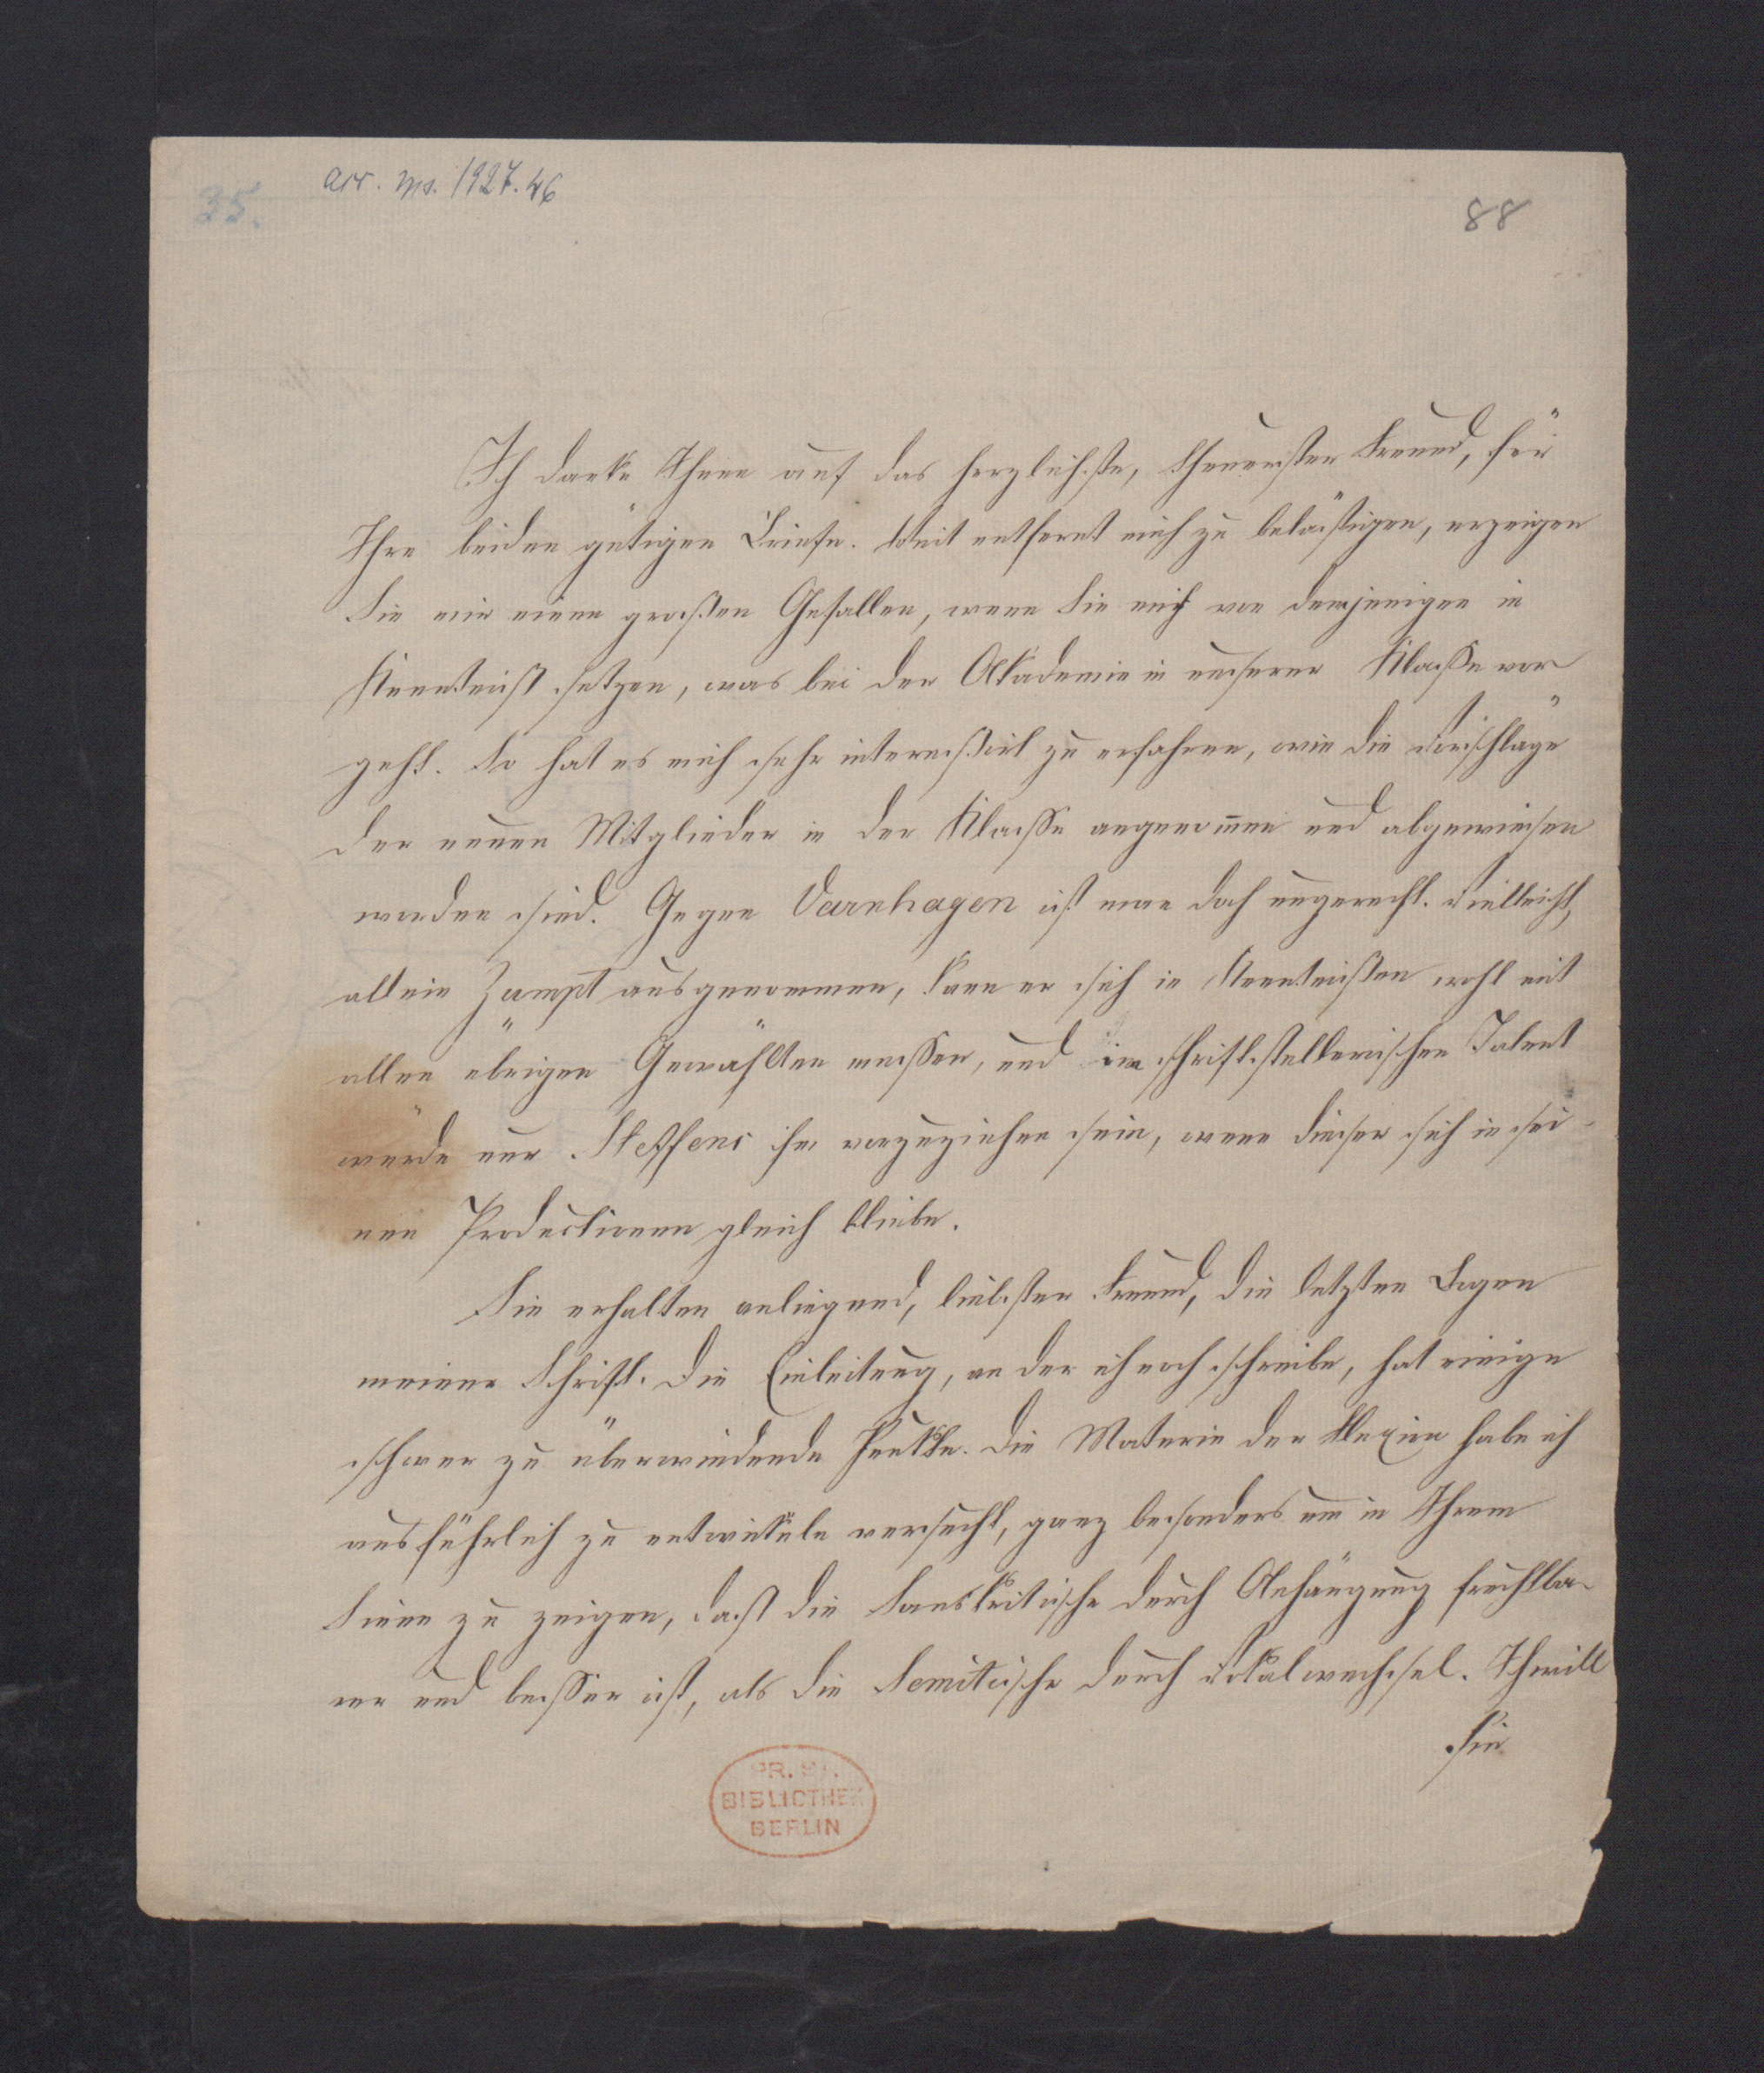 35.
acc. ms. 1927.46
88
Ich danke Ihnen auf das herzlichste, theuerster Freund, für
Ihre beiden gütigen Briefe. Weit entfernt mich zu belästigen, erzeigen
Sie mir einen großen Gefallen, wenn Sie mich von demjenigen in
Kenntniß setzen, was bei der Akademie in unserer Klasse vor
geht. So hat es mich sehr interessirt zu erfahren, wie die Vorschläge
der neuen Mitglieder in der Klasse angenom̄en und abgewiesen
worden sind. Gegen Varnhagen ist man doch ungerecht. Vielleicht,
allein Zumpt ausgenommen, kann er sich in Kenntnißen wohl mit
allen übrigen Gewählten messen, und im schriftstellerischen Talent
würde nur Steffens ihm vorzuziehen sein, wenn dieser sich in sei-
nen Productionen gleich bliebe.
Sie erhalten anliegend, liebster Freund, die letzten Bogen
meiner Schrift. Die Einleitung, an der ich noch schreibe, hat einige
schwer zu überwindende Punkte. Die Materie der Flexion habe ich
ausführlich zu entwickeln versucht, ganz besonders um in Ihrem
Sinne zu zeigen, daß die Sanskritische durch Anhängung fruchtba-
rer und besser ist, als die Semitische durch Vokalwechsel. Ich will
Sie
PR. ST.
BIBLIOTHEK
BERLIN